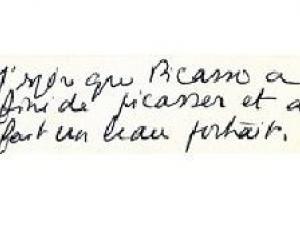 J'espère que Picasso a
fini de picasser et a
fait un beau portrait.